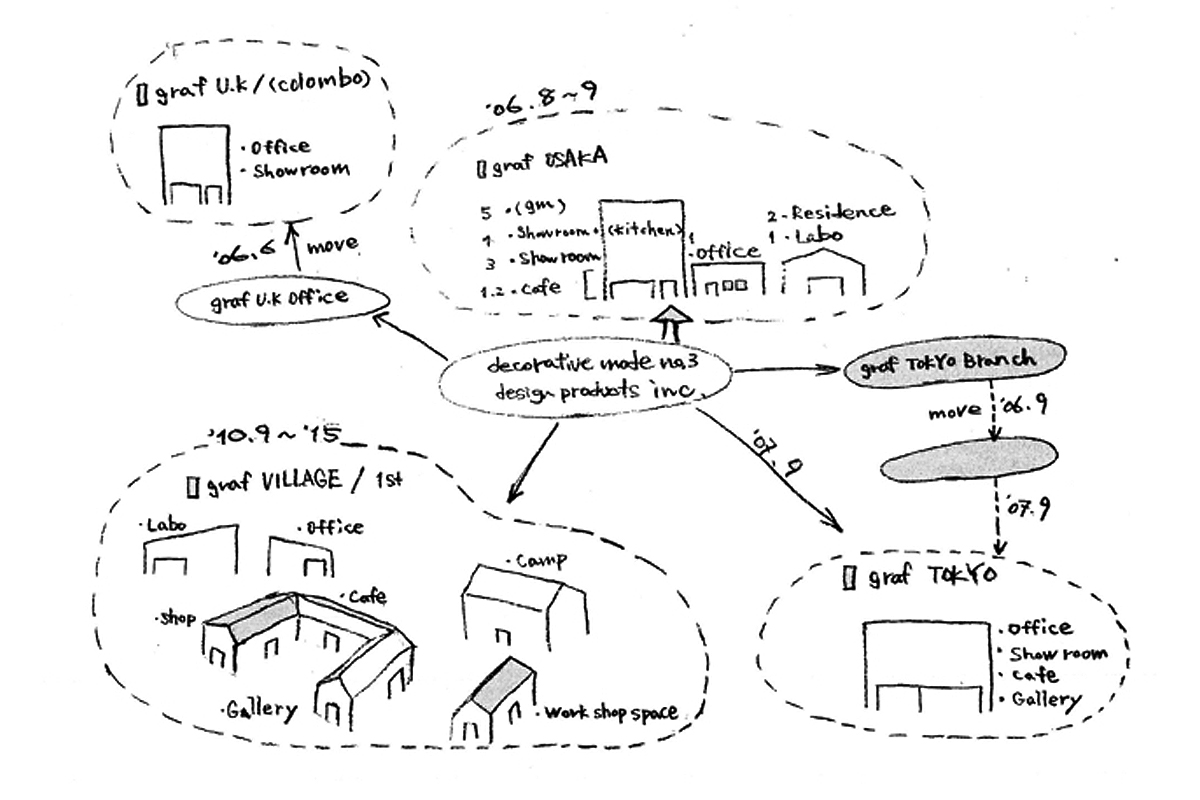 graf U.K / (colombo)
• Office
• Showroom
'06.6
move
graf U.K Office
'06.8~9
graf OSAKA
5 • (gm)
4 • Showroom • (kitchen)
3 • Showroom
1.2 • Cafe
1
• Office
2 - Residence
1 • Labo
decorative mode no.3
design products inc.
graf TOKYO Branch
move '06.9
'07.9
'07.9
'10.9 ~ '15
graf VILLAGE / 1st
• Labo
• Office
• Camp
• Shop
• Cafe
• Gallery
• Work shop space
graf TOKYO
• Office
• Show room
• Cafe
• Gallery